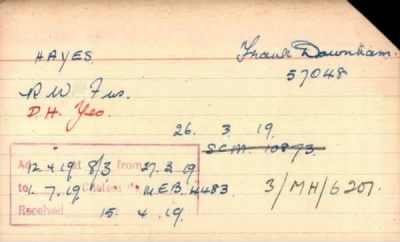 HAYES. Frank Downham.
57048
R.W. Fus.
D.H. Yeo.
26. 3. 19.
S.C.M. 10873.
12.4.19 at 8/3 from 27.3.19
to 1.7.19 Chelsea M.E.B. 4483. 3/MH/6201.
Received 15.4.19.